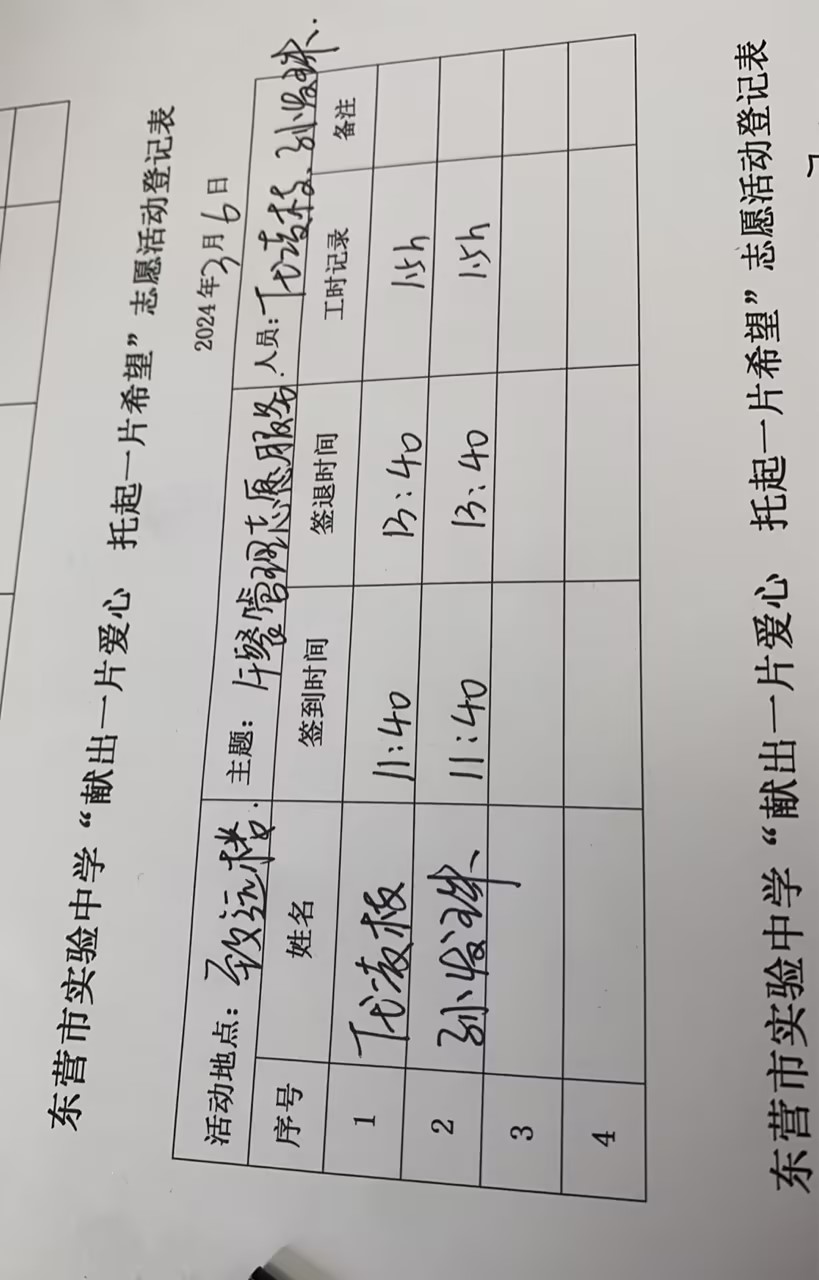 东营市实验中学“献出一片爱心 托起一片希望”志愿活动登记表
2024年3月6日
活动地点：致远楼. 主题：午餐管理志愿服务. 人员：
序号 姓名 签到时间 签退时间 工时记录 备注
1 11:40 13:40 1.5h
2 孙 11:40 13:40 1.5h
3
4
东营市实验中学“献出一片爱心 托起一片希望”志愿活动登记表